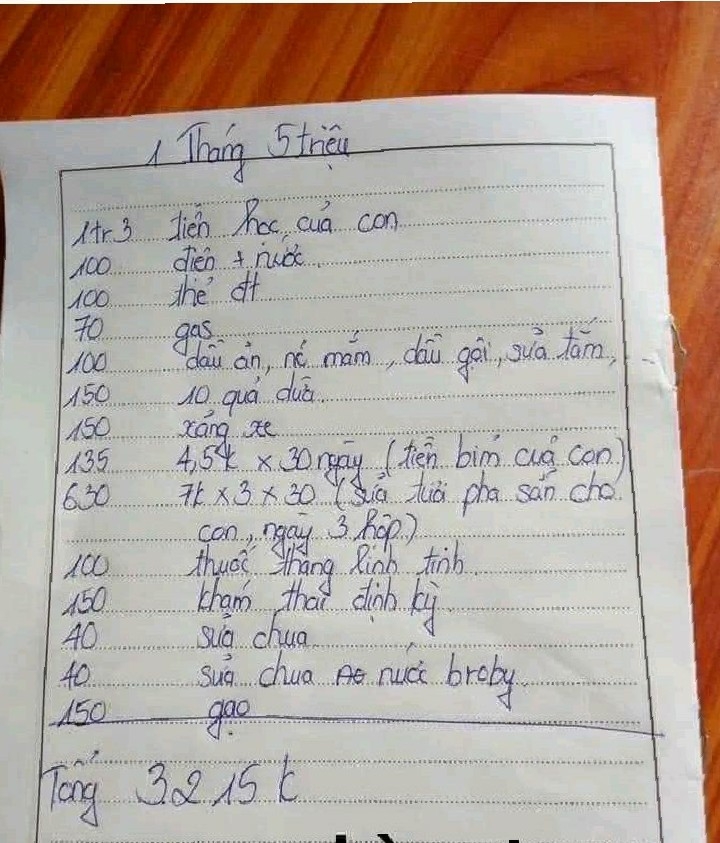 1 Tháng 5 triệu
1tr3 tiền học của con
100 điện + nước
100 thẻ đt
70 gas
100 dầu ăn, nc mắm, dầu gội, sữa tắm,
150 10 quả dừa
150 xăng xe
135 4,5k x 30 ngày (tiền bỉm của con)
630 7k x 3 x 30 (sữa tươi pha sẵn cho
con, ngày 3 hộp)
100 thuốc thang linh tinh
150 khám thai định kỳ
40 sữa chua
40 sữa chua nước broby
150 gạo
Tổng 3215k